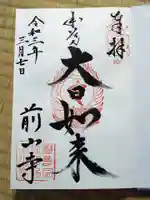 奉拝
本尊
大日如来
前山寺
令和三年
三月七日